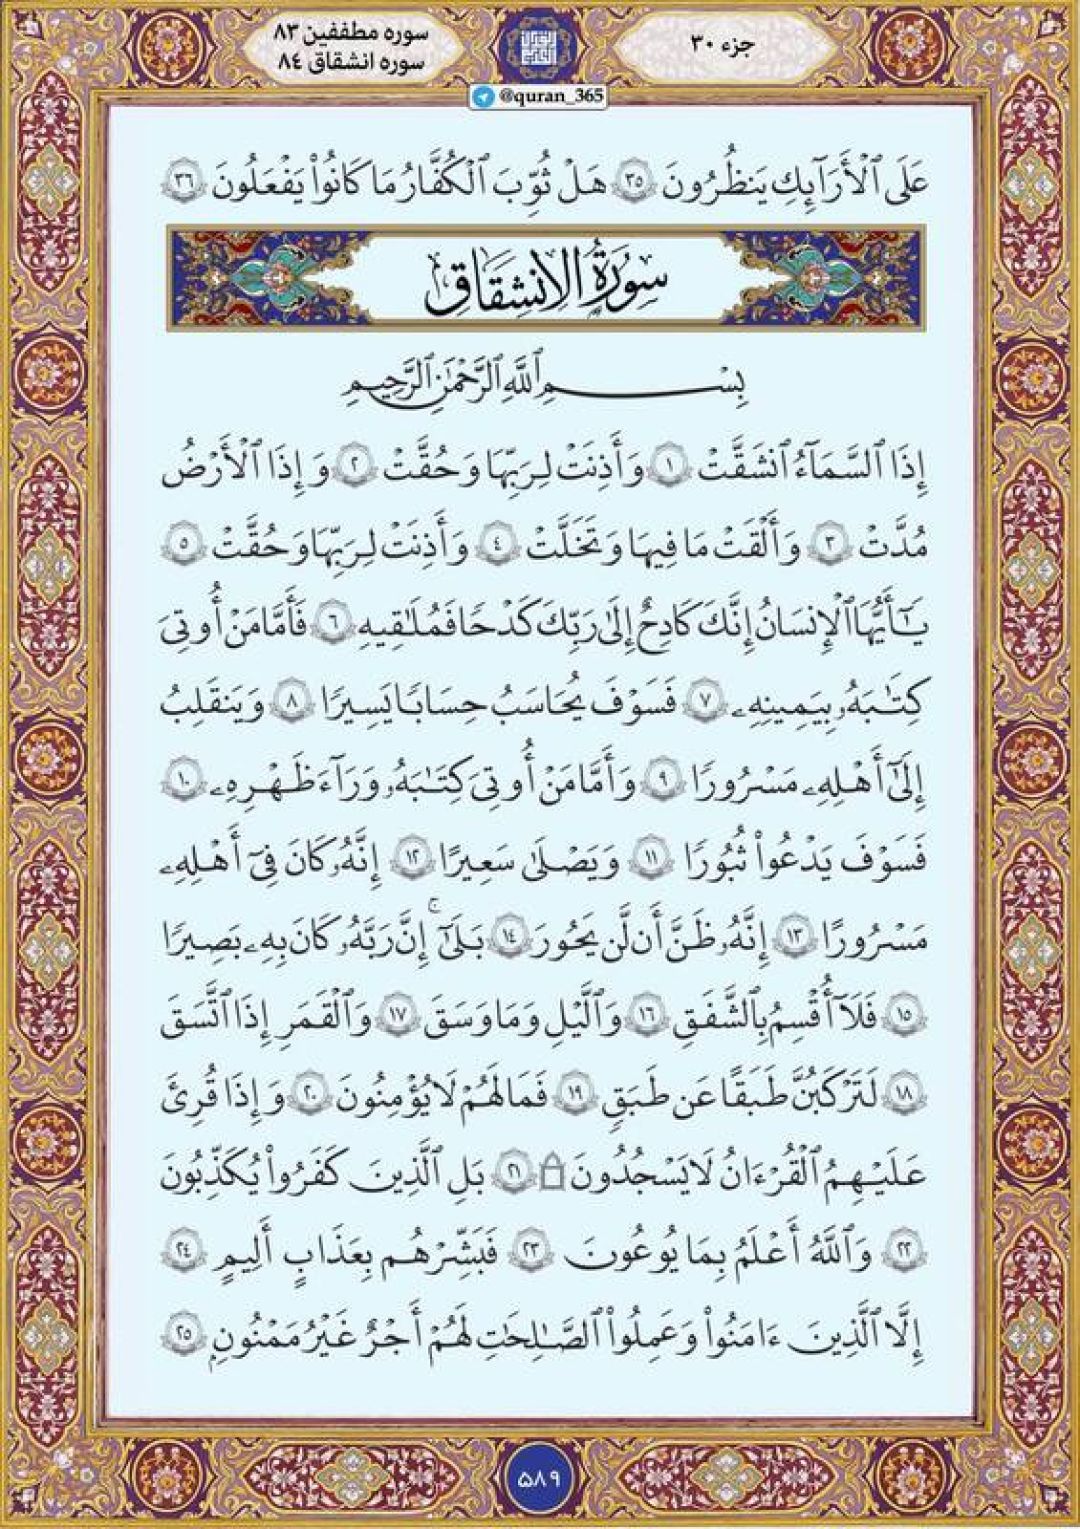 جزء ۳۰
سوره مطففین ۸۳
سوره انشقاق ۸٤
@quran_365
عَلَى ٱلْأَرَآئِكِ يَنظُرُونَ ٣٥ هَلْ ثُوِّبَ ٱلْكُفَّارُ مَا كَانُوا۟ يَفْعَلُونَ ٣٦
سُورَةُ الانشِقَاقِ
بِسْمِ ٱللَّهِ ٱلرَّحْمَٰنِ ٱلرَّحِيمِ
إِذَا ٱلسَّمَآءُ ٱنشَقَّتْ ١ وَأَذِنَتْ لِرَبِّهَا وَحُقَّتْ ٢ وَإِذَا ٱلْأَرْضُ
مُدَّتْ ٣ وَأَلْقَتْ مَا فِيهَا وَتَخَلَّتْ ٤ وَأَذِنَتْ لِرَبِّهَا وَحُقَّتْ ٥
يَٰٓأَيُّهَا ٱلْإِنسَٰنُ إِنَّكَ كَادِحٌ إِلَىٰ رَبِّكَ كَدْحًا فَمُلَٰقِيهِ ٦ فَأَمَّا مَنْ أُوتِىَ
كِتَٰبَهُۥ بِيَمِينِهِۦ ٧ فَسَوْفَ يُحَاسَبُ حِسَابًا يَسِيرًا ٨ وَيَنقَلِبُ
إِلَىٰٓ أَهْلِهِۦ مَسْرُورًا ٩ وَأَمَّا مَنْ أُوتِىَ كِتَٰبَهُۥ وَرَآءَ ظَهْرِهِۦ ١٠
فَسَوْفَ يَدْعُوا۟ ثُبُورًا ١١ وَيَصْلَىٰ سَعِيرًا ١٢ إِنَّهُۥ كَانَ فِىٓ أَهْلِهِۦ
مَسْرُورًا ١٣ إِنَّهُۥ ظَنَّ أَن لَّن يَحُورَ ١٤ بَلَىٰٓ ۚ إِنَّ رَبَّهُۥ كَانَ بِهِۦ بَصِيرًا
١٥ فَلَآ أُقْسِمُ بِٱلشَّفَقِ ١٦ وَٱلَّيْلِ وَمَا وَسَقَ ١٧ وَٱلْقَمَرِ إِذَا ٱتَّسَقَ
١٨ لَتَرْكَبُنَّ طَبَقًا عَن طَبَقٍ ١٩ فَمَا لَهُمْ لَا يُؤْمِنُونَ ٢٠ وَإِذَا قُرِئَ
عَلَيْهِمُ ٱلْقُرْءَانُ لَا يَسْجُدُونَ ۩ ٢١ بَلِ ٱلَّذِينَ كَفَرُوا۟ يُكَذِّبُونَ
٢٢ وَٱللَّهُ أَعْلَمُ بِمَا يُوعُونَ ٢٣ فَبَشِّرْهُم بِعَذَابٍ أَلِيمٍ ٢٤
إِلَّا ٱلَّذِينَ ءَامَنُوا۟ وَعَمِلُوا۟ ٱلصَّٰلِحَٰتِ لَهُمْ أَجْرٌ غَيْرُ مَمْنُونٍۭ ٢٥
۵۸۹